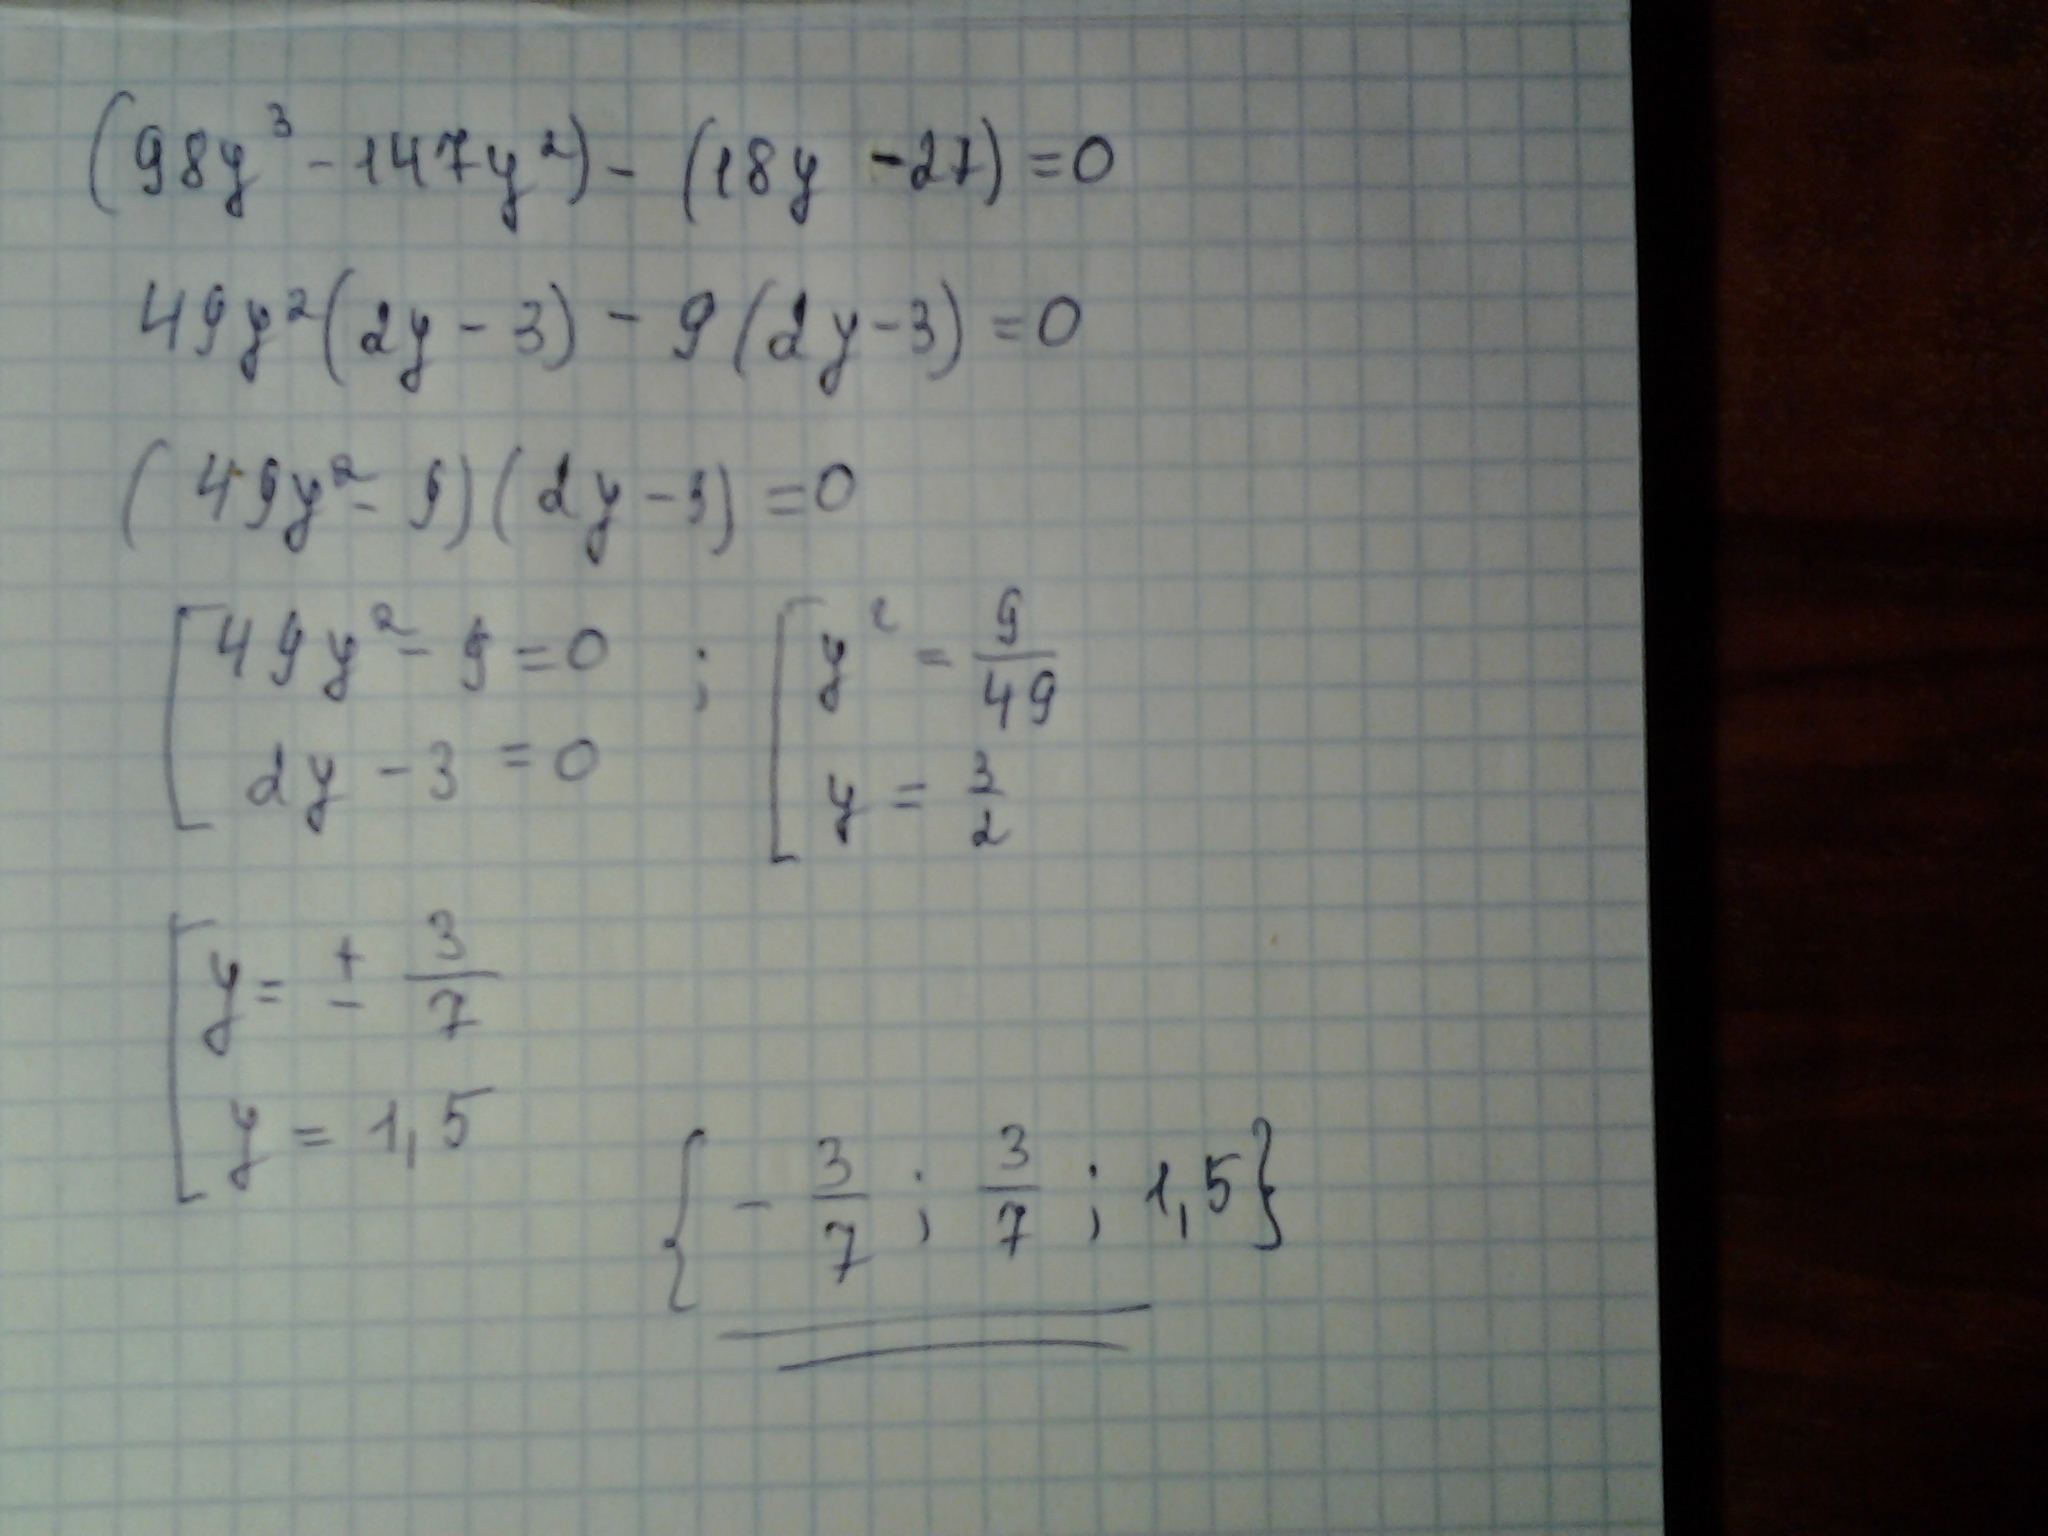 (98y³ - 147y²) - (18y - 27) = 0
49y²(2y - 3) - 9(2y - 3) = 0
(49y² - 9)(2y - 3) = 0
[49y² - 9 = 0 ; [y² = 9/49
2y - 3 = 0 y = 3/2
[y = ± 3/7
y = 1,5
{- 3/7 ; 3/7 ; 1,5}